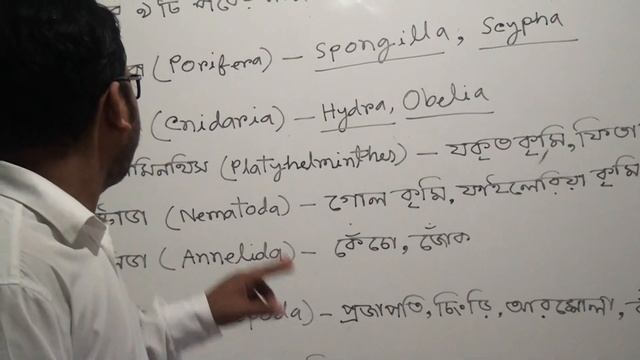 ৯টি
(Porifera) – Spongilla, Scypha
(Cnidaria) – Hydra, Obelia
(Platyhelminthes) – যকৃত কৃমি,
(Nematoda) – গোল কৃমি, ফাইলেরিয়া কৃমি
(Annelida) – কেঁচো, জোঁক
poda) – প্রজাপতি, চিংড়ি, আরশোলা,